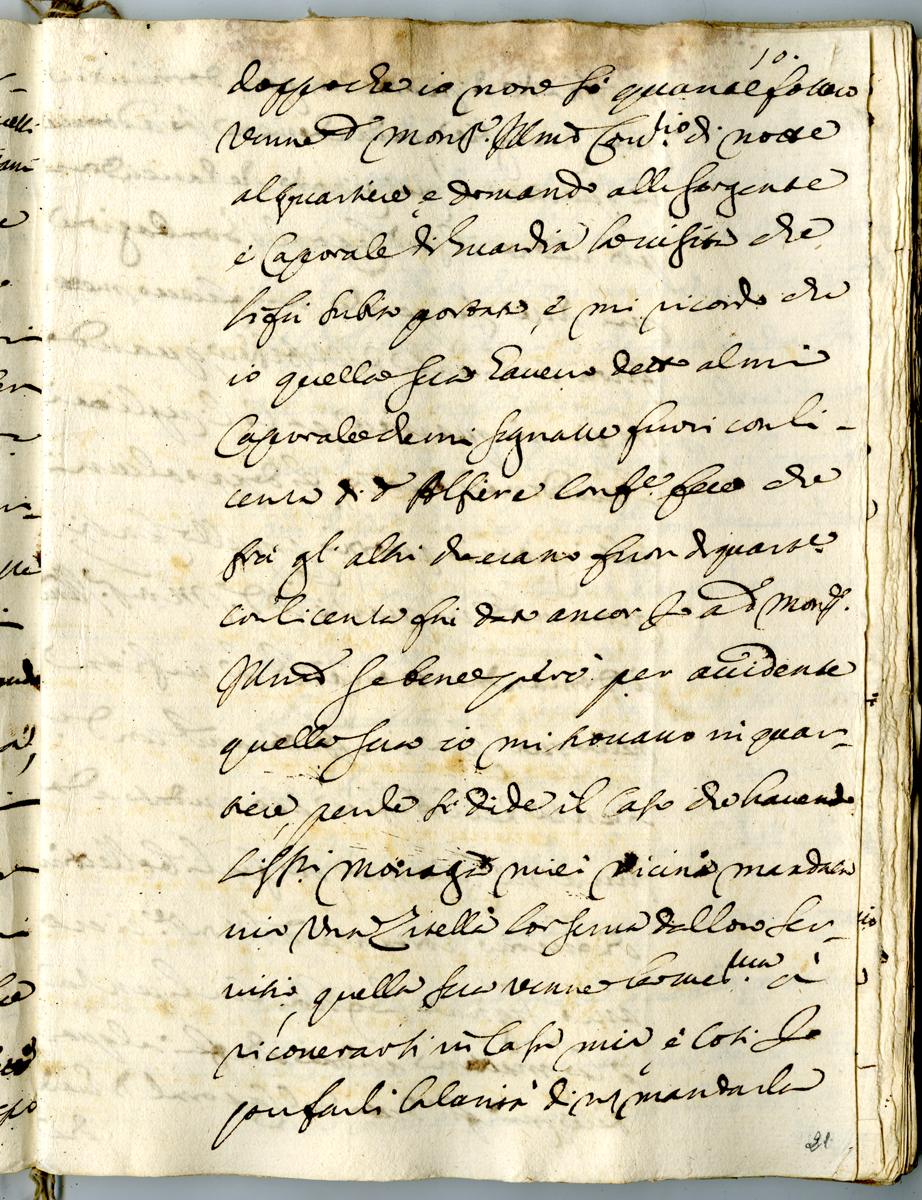 10.
doppo che io non sò quando fosse
venne d.o Mons.r Ill.mo di notte
al quartiere, e domandò alli sargente
e Caporale di Guardia la visita che
li fù subito portata, e mi ricordo che
io quella sera havevo detto al mio
Caporale che mi segnasse fuori con li-
cenza di d.o Alfiere Conf.e fece che
frà gl'altri che erano fuor di quart.e
con licenza fui dato ancor Io a d.o Mons.r
Ill.mo se bene però per accidente
quella sera io mi trovavo in quar-
tiere, perche si diede il caso che havendo
miei vicini mandata
via una Zitella Corsa dal loro ser-
vitio, quella sera venne à
ricoverarsi in Casa mia, e così Io
per farli la carità di n. mandarla
21